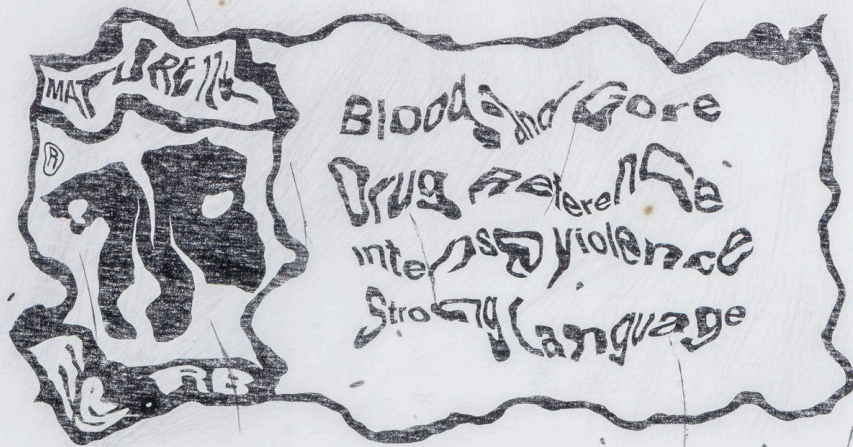 MATURE 17+
®
M
Blood and Gore
Drug Reference
Intense Violence
Strong Language